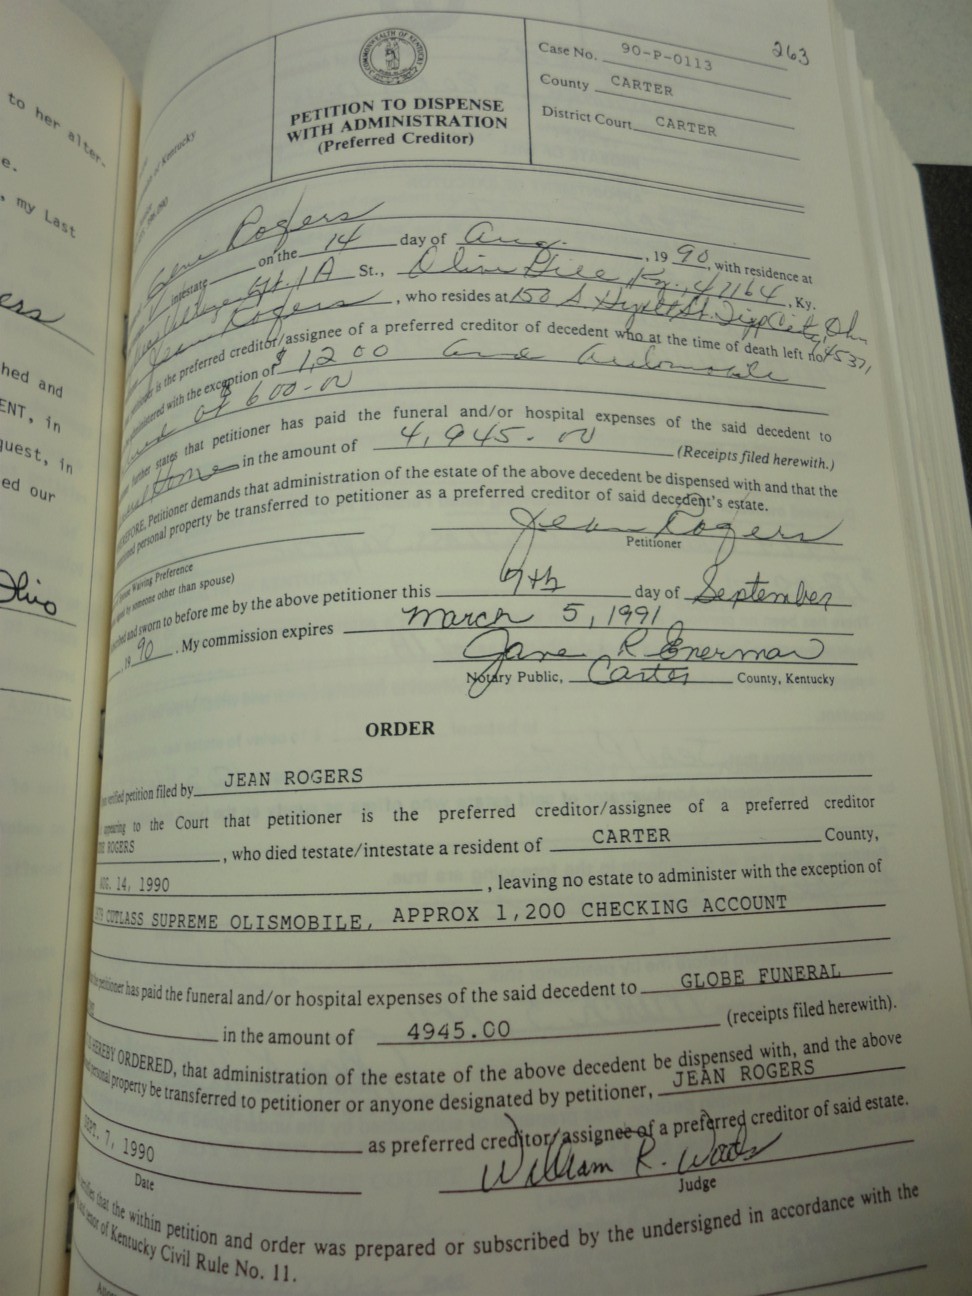 to her alter-
e.
, my Last
ess
hed and
ENT, in
quest, in
ed our
Ohio
263
Case No. 90-P-0113
County CARTER
District Court CARTER
of Kentucky
COMMONWEALTH OF KENTUCKY
PETITION TO DISPENSE
WITH ADMINISTRATION
(Preferred Creditor)
Gene Rogers
intestate on the 14 day of Aug. , 19 90, with residence at
Apt. 1A St., Olive Hill Ky. 41164, Ky.
Jean Rogers , who resides at 150 S Hyatt St. Tipp City, Oh
45371,
is the preferred creditor/assignee of a preferred creditor of decedent who at the time of death left no
administered with the exception of $1,200 and Automobile
of 600.00
further states that petitioner has paid the funeral and/or hospital expenses of the said decedent to
Home in the amount of 4,945.00 (Receipts filed herewith.)
Petitioner demands that administration of the estate of the above decedent be dispensed with and that the
personal property be transferred to petitioner as a preferred creditor of said decedent's estate.
Jean Rogers
Petitioner
Waiving Preference
by someone other than spouse)
and sworn to before me by the above petitioner this 7th day of September
, 19 90. My commission expires March 5, 1991
Jane R
Notary Public, Carter County, Kentucky
ORDER
verified petition filed by JEAN ROGERS
appearing to the Court that petitioner is the preferred creditor/assignee of a preferred creditor
ROGERS , who died testate/intestate a resident of CARTER County,
AUG. 14, 1990 , leaving no estate to administer with the exception of
CUTLASS SUPREME OLISMOBILE, APPROX 1,200 CHECKING ACCOUNT
petitioner has paid the funeral and/or hospital expenses of the said decedent to GLOBE FUNERAL
in the amount of 4945.00 (receipts filed herewith).
HEREBY ORDERED, that administration of the estate of the above decedent be dispensed with, and the above
personal property be transferred to petitioner or anyone designated by petitioner, JEAN ROGERS
as preferred creditor/assignee of a preferred creditor of said estate.
SEPT. 7, 1990 William R. Woods
Date Judge
that the within petition and order was prepared or subscribed by the undersigned in accordance with the
of Kentucky Civil Rule No. 11.